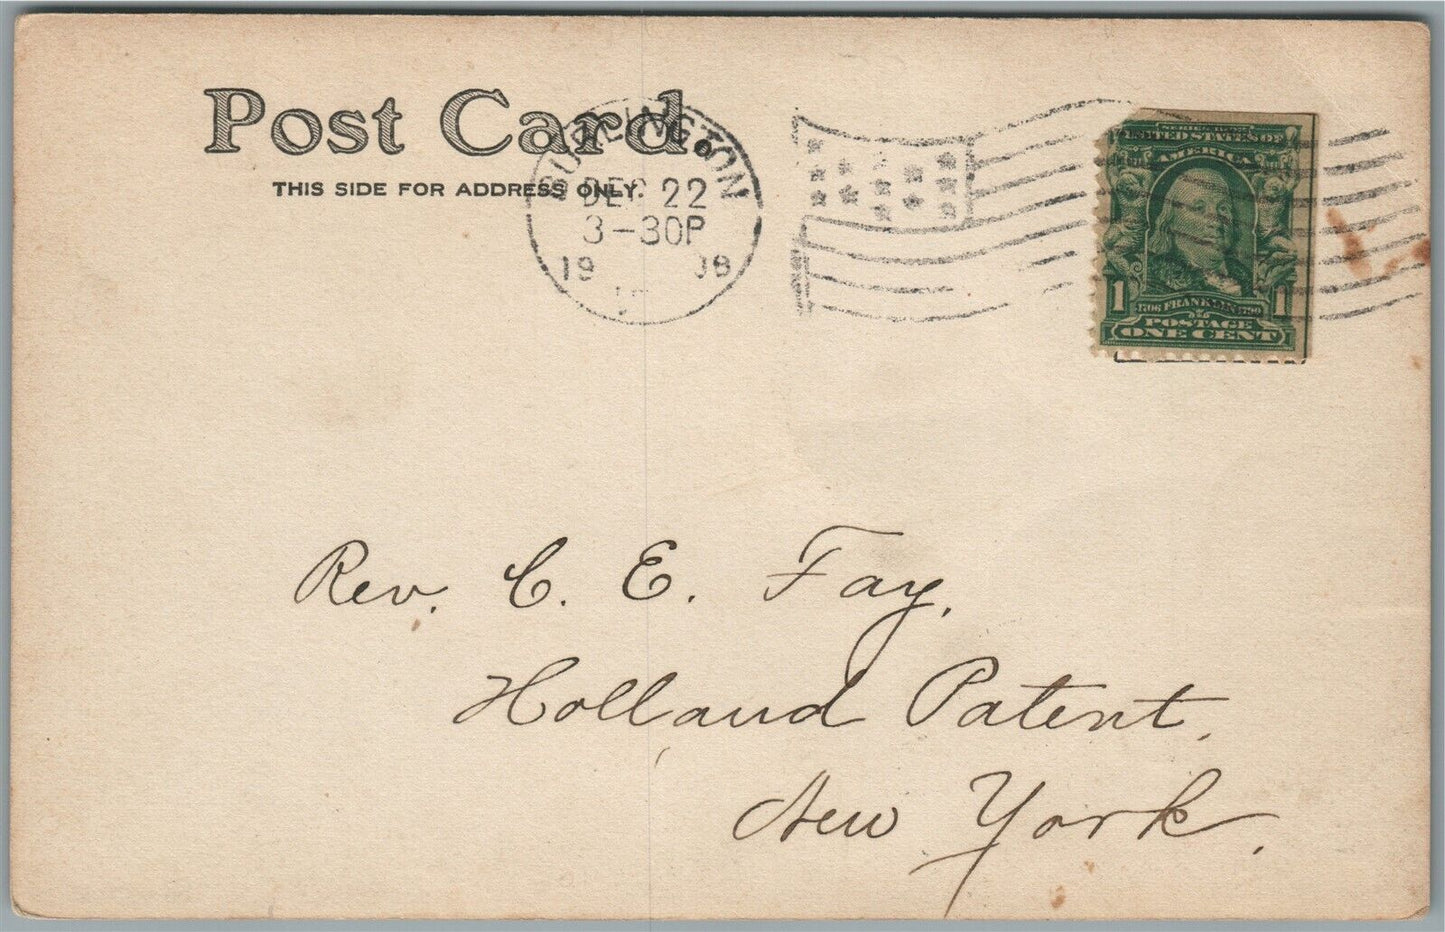 Post Card
THIS SIDE FOR ADDRESS ONLY.
BURLINGTON
DEC 22
3-30P
19 08
SERIES 1902
UNITED STATES OF
AMERICA
1 1
1706 FRANKLIN 1790
POSTAGE
ONE CENT
Rev. C. E. Fay,
Holland Patent,
New York.